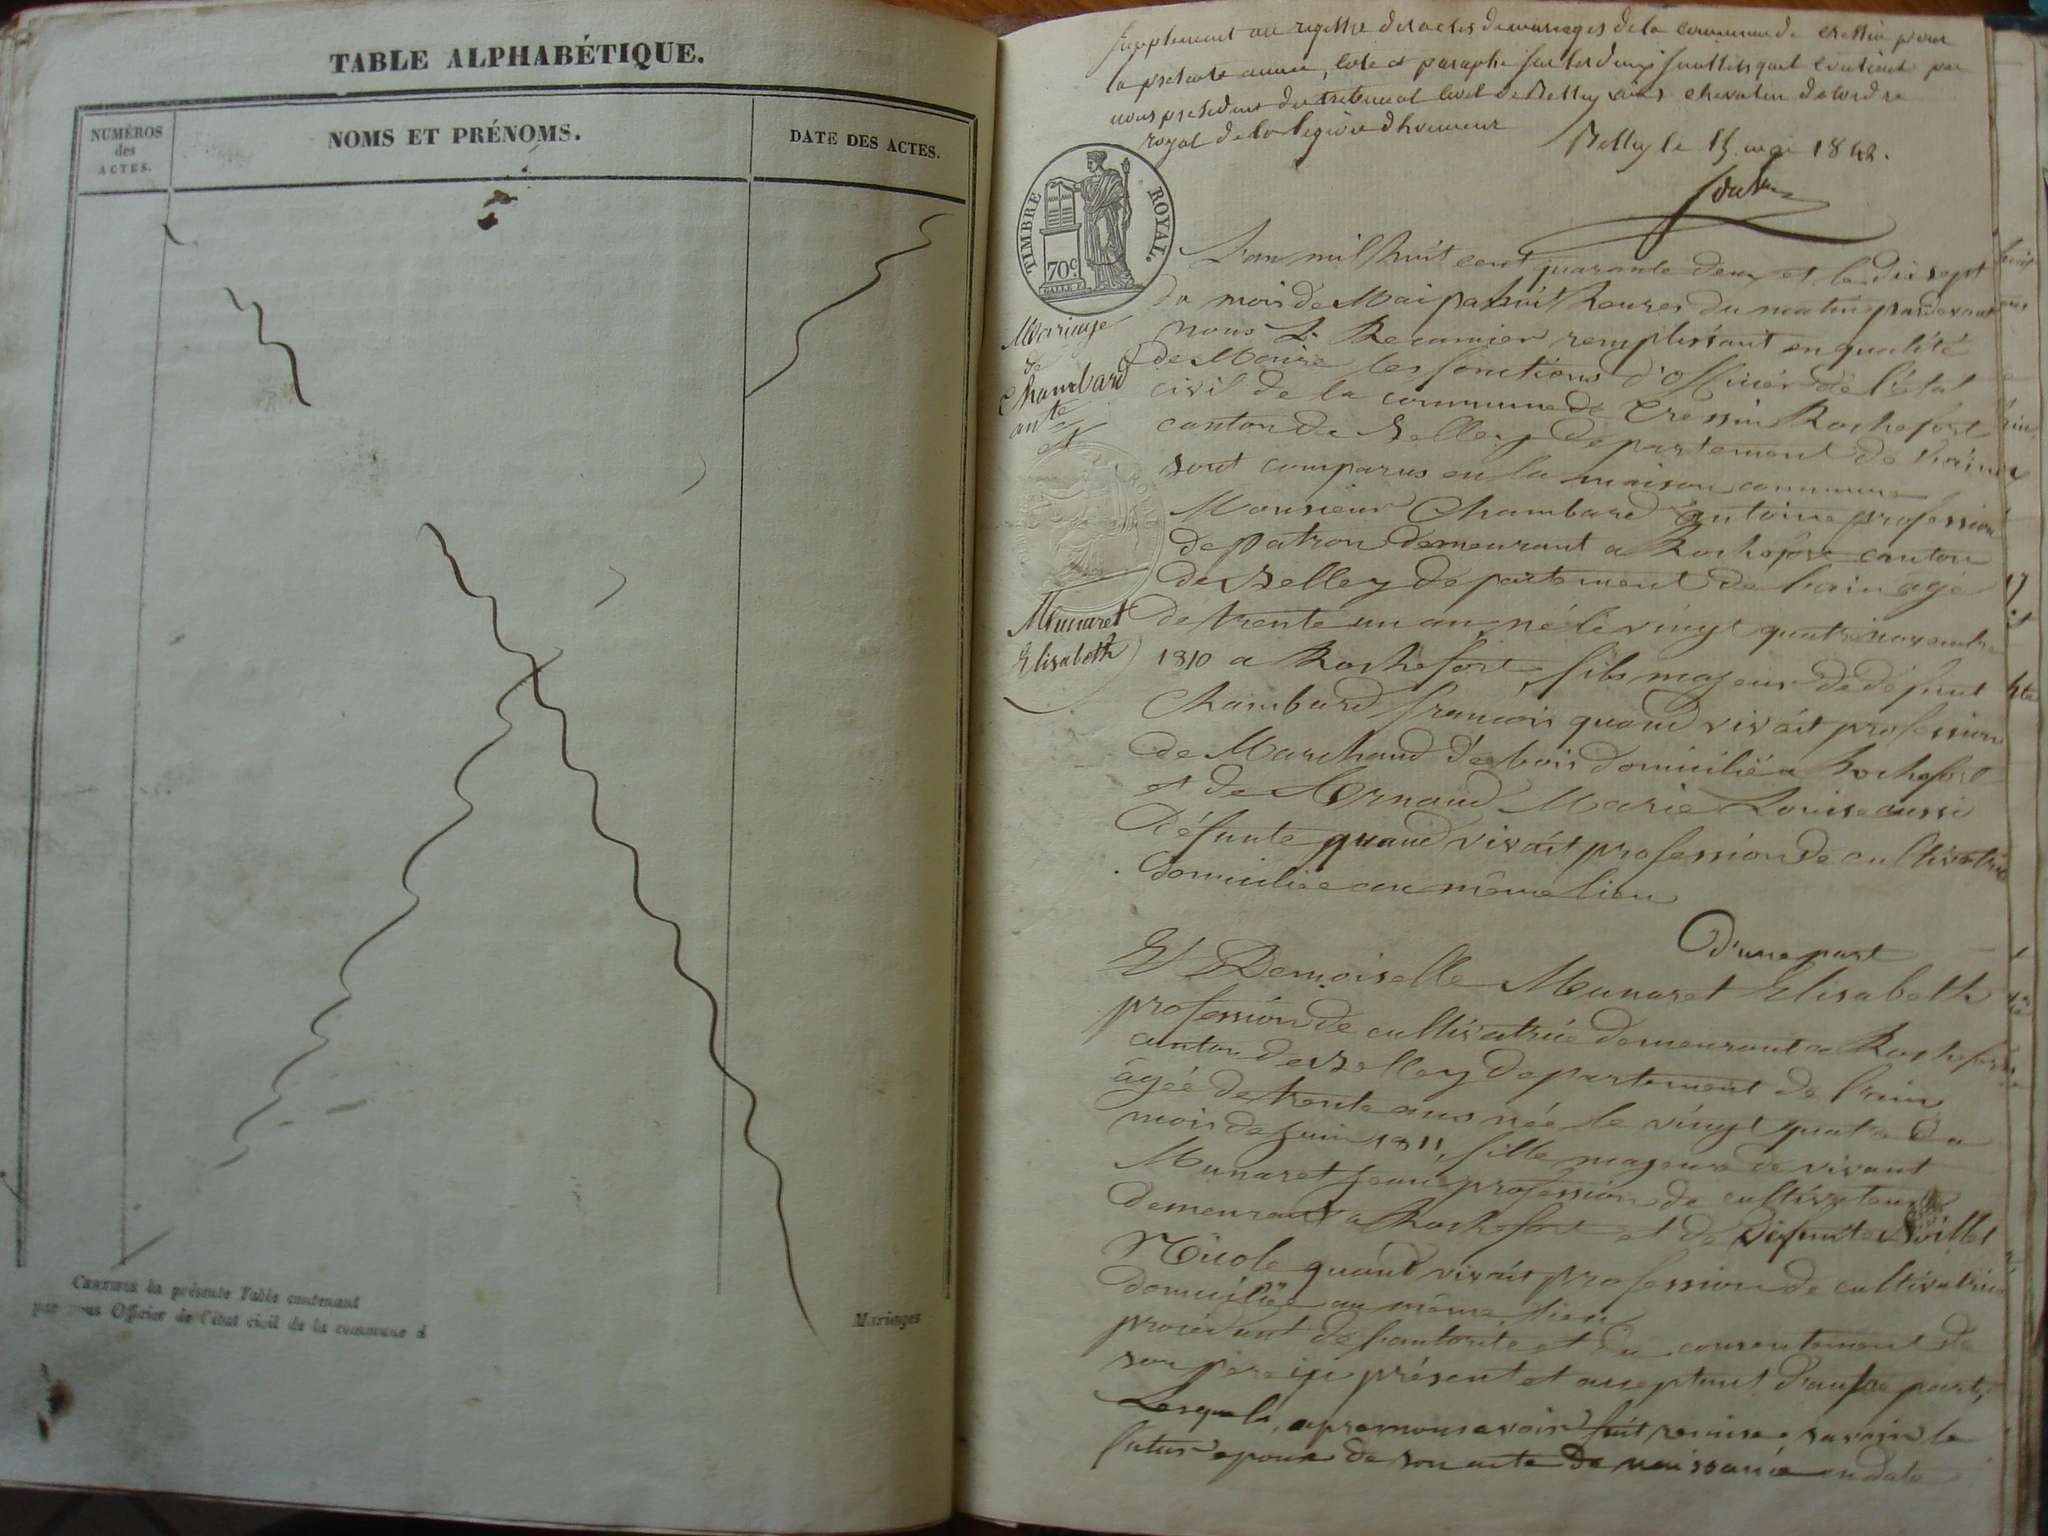 TABLE ALPHABÉTIQUE.
NUMÉROS
des
ACTES.
NOMS ET PRÉNOMS.
DATE DES ACTES.
CERTIFIE la présente Table contenant
par nous Officier de l'état civil de la commune d
Mariages
supplement au registre des actes de mariages de la commune de cressin pour
la presente année, coté et paraphé sur les deux feuillets quil contient par
nous president du tribunal civil de Belley chevalier de lordre
royal de la legion dhonneur
Belley le 15 mai 1842.
TIMBRE ROYAL.
70c.
Mariage
de
Chambard
ante
et
Munaret
Elisabeth
L'an mil huit cent quarante deux et le dix sept
du mois de Mai à huit heures du matin pardevant
nous L. Recamier remplissant en qualité
de Maire les fonctions d'officier de l'état
civil de la commune de Cressin Rochefort
canton de Belley departement de l'ain
sont comparus en la maison commune
Monsieur Chambard Antoine profession
de patron demeurant a Rochefort canton
de Belley departement de l'ain age
de trente un an né le vingt quatre novembre
1810 a Rochefort, fils majeur de défunt
Chambard francois quand vivait profession
de Marchand de bois domicilié a Rochefort
et de Ornaud Marie Louise aussi
Défunte quand vivait profession de cultivatrice
domiciliée au même lieu
D'une part
Et Demoiselle Munaret Elisabeth
profession de cultivatrice demeurant a Rochefort
canton de Belley departement de l'ain
âgée de trente ans née le vingt quatre du
mois de juin 1811, fille majeure de vivant
Munaret Jean profession de cultivateur
demeurant a Rochefort et de Défunte
Nicole quand vivait profession de cultivatrice
domiciliée au même lieu
procedant de l'autorite et du consentement de
son père ici présent et acceptant D'autre part,
Lesquels, apres nous avoir fait remise savoir le
futur epoux de son acte de naissance en date